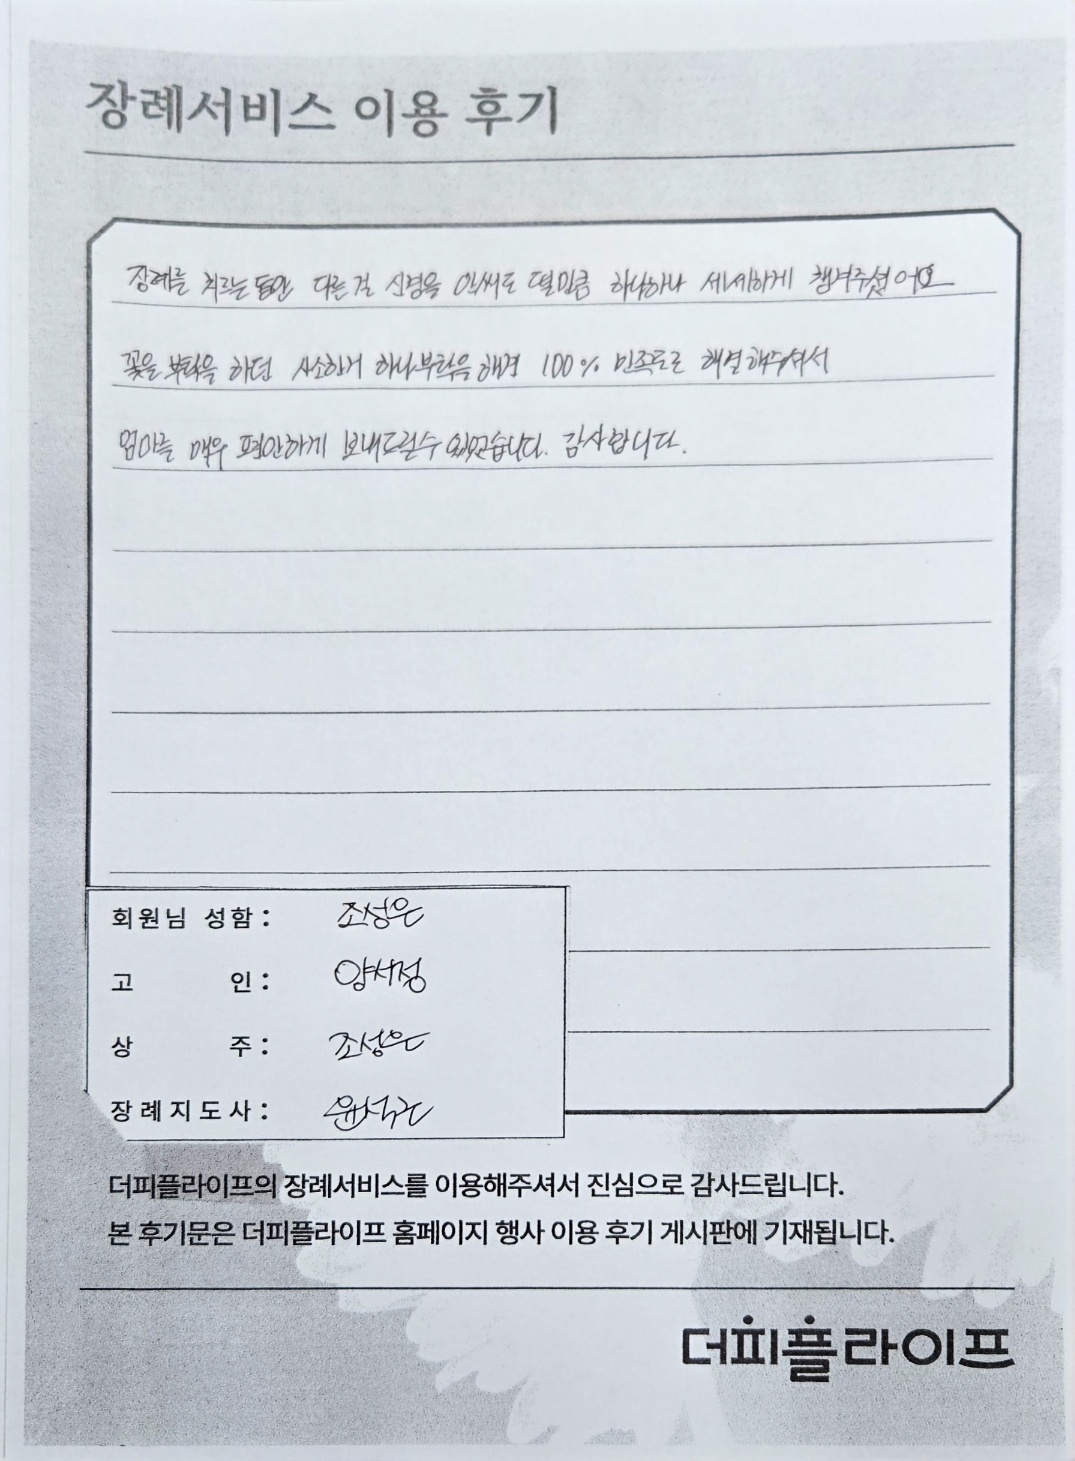 장례서비스 이용 후기
장례를 치르는 동안 다른걸 신경을 안써도 될만큼 하나하나 세세하게 챙겨주셨어요
꽃을 부탁을 하던 사소한거 하나 부탁을 해도 100% 만족도로 해결해주셔서
엄마를 매우 편안하게 보내드릴수 있었습니다. 감사합니다.
회원님 성함 : 조성은
고 인 : 양서정
상 주 : 조성은
장례지도사 :
더피플라이프의 장례서비스를 이용해주셔서 진심으로 감사드립니다.
본 후기문은 더피플라이프 홈페이지 행사 이용 후기 게시판에 기재됩니다.
더피플라이프